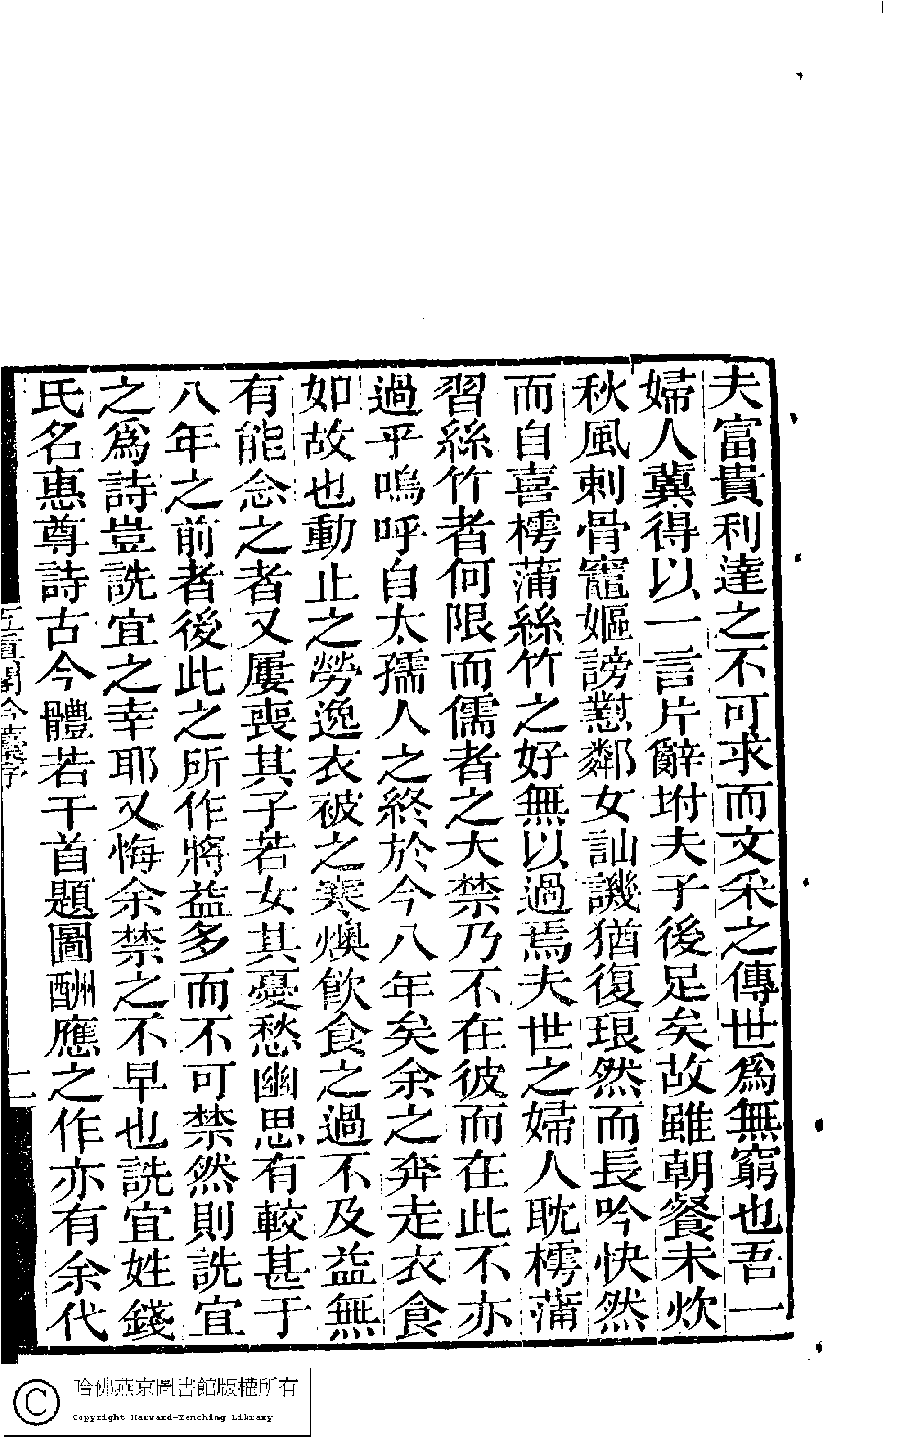 夫富貴利達之不可求而文采之傳世爲無窮也吾一
婦人冀得以一言片辭坿夫子後足矣故雖朝餐未炊
秋風刺骨竈嫗謗懟鄰女訕譏猶復琅然而長吟快然
而自喜樗蒲絲竹之好無以過焉夫世之婦人耽樗蒲
習絲竹者何限而儒者之大禁乃不在彼而在此不亦
過乎嗚呼自太孺人之終於今八年矣余之奔走衣食
如故也動止之勞逸衣被之寒燠飮食之過不及益無
有能念之者又屢喪其子若女其憂愁幽思有較甚于
八年之前者後此之所作將益多而不可禁然則詵宜
之爲詩豈詵宜之幸耶又悔余禁之不早也詵宜姓錢
氏名惠尊詩古今體若干首題圖酬應之作亦有余代
五眞閣吟藁序
二
哈佛燕京圖書館版權所有
Copyright Harvard-Yenching Library